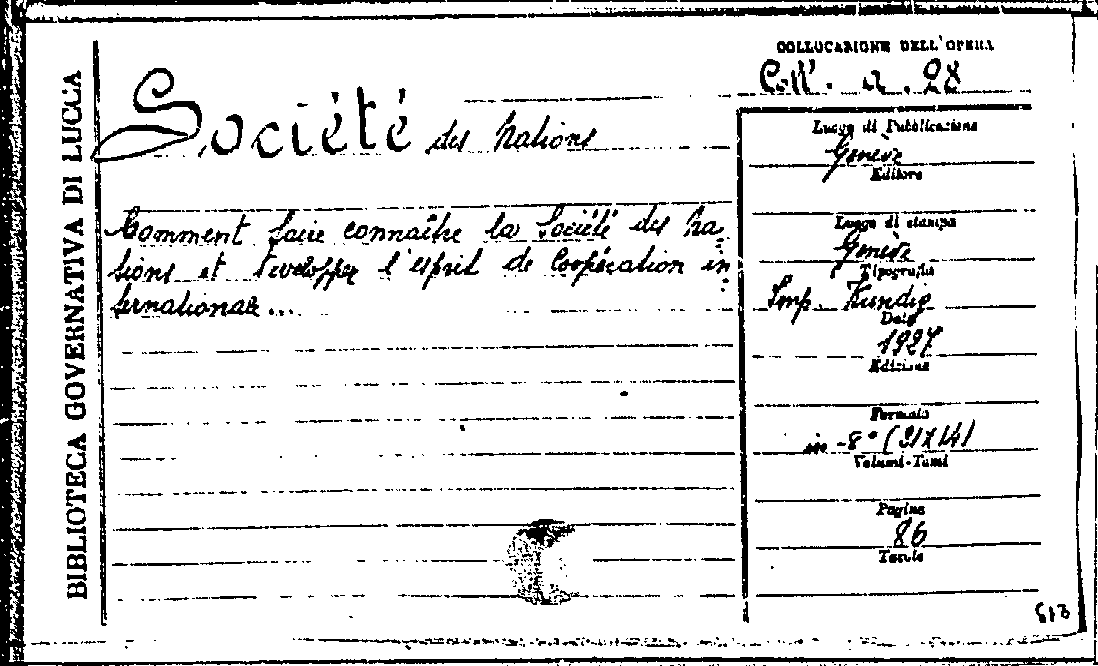 BIBLIOTECA GOVERNATIVA DI LUCCA
COLLOCAZIONE DELL'OPERA
Coll. a. 28
Société des Nations
Comment faire connaître la Société des Na=
tions et developper l'esprit de Coopération in=
ternationale...
Luogo di Pubblicazione
Genève
Editore
Luogo di stampa
Genève
Tipografia
Imp. Kundig
Data
1927
Edizione
Formato
in-8° (21X14)
Volumi-Tomi
Pagine
86
Tavole